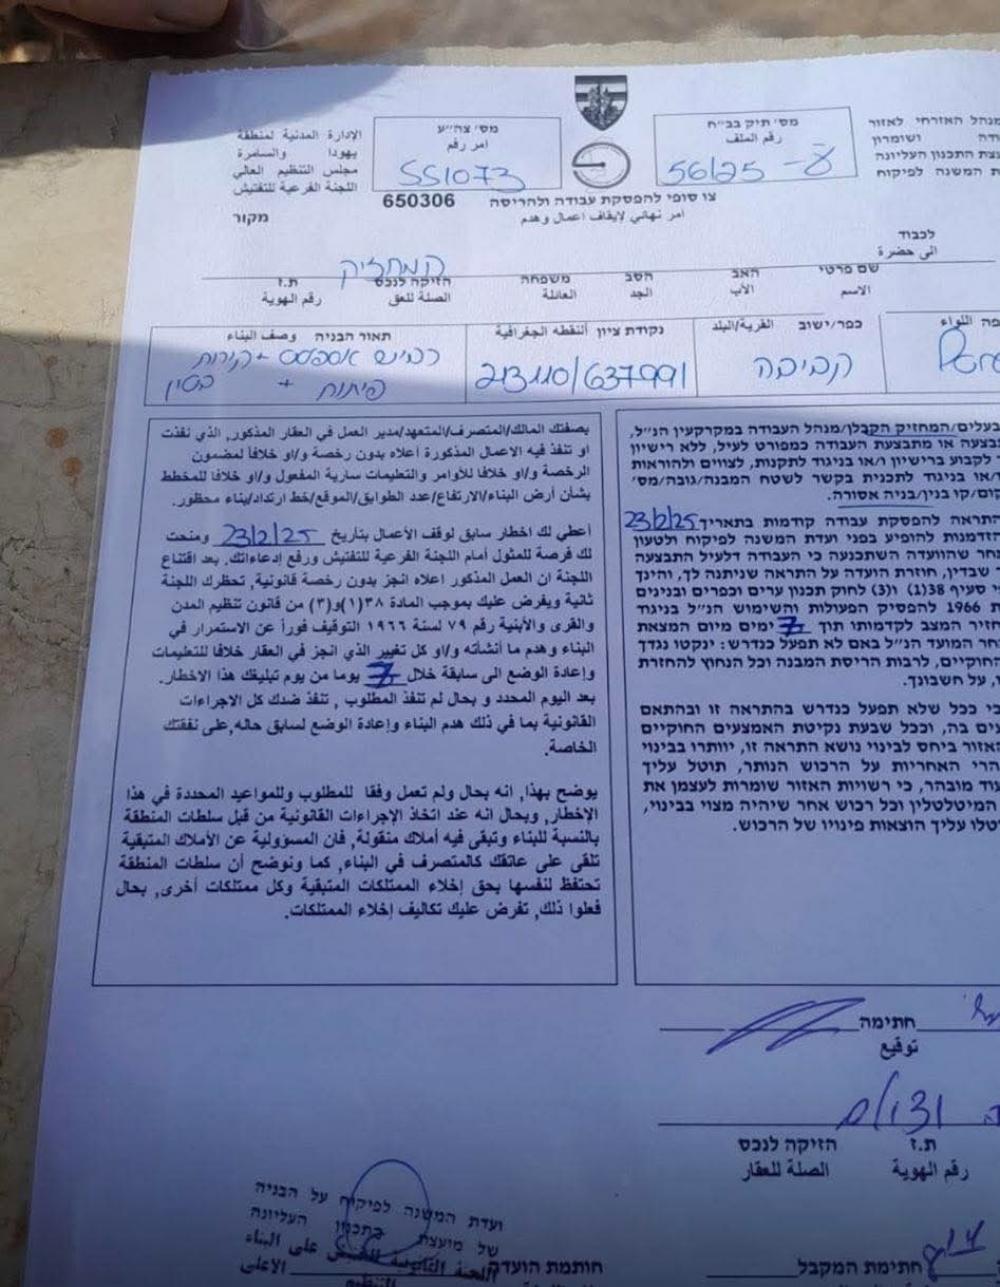 מנהל האזרחי לאזור
ושומרון
התכנון העליונה
המשנה לפיקוח
מס' תיק בב"ח
رقم الملف
56/25
מס' צה"ע
امر رقم
551073
הוו הإدارة المدنية لمنطقة
يهودا والسامرة
مجلس التنظيم العالي
اللجنة الفرعية للتفتيش
צו סופי להפסקת עבודה ולהריסה
650306
امر نهائي لإيقاف اعمال وهدم
מקור
לכבוד
الى حضرة
המחזיק
שם פרטי האב הסב משפחה הזיקה לנכס ת.ז
الاسم الأب الجد العائلة الصلة للعق رقم الهوية
اللواء
כפר/ישוב القرية/البلد
נקודת ציון النقطة الجغرافية
213110/637991
תאור הבניה وصف البناء
כביש אספלט + קירות
פיתוח +
בעלים/המחזיק הקבלן/מנהל העבודה במקרקעין הנ"ל,
או מתבצעת העבודה כמפורט לעיל, ללא רישיון
לקבוע ברישיון ו/או בניגוד לתקנות, לצווים ולהוראות
או בניגוד לתכנית בקשר לשטח המבנה/גובה/מס'
קו בנין/בניה אסורה.
התראה להפסקת עבודה קודמות בתאריך 23/2/25
הזדמנות להופיע בפני ועדת המשנה לפיקוח ולטעון
שהוועדה השתכנעה כי העבודה דלעיל התבצעה
שבדין, חוזרת הועדה על התראה שניתנה לך, והינך
סעיף 38(1) ו(3) לחוק תכנון ערים וכפרים ובנינים
1966 להפסיק הפעולות והשימוש הנ"ל בניגוד
המצב לקדמותו תוך 7 ימים מיום המצאת
המועד הנ"ל באם לא תפעל כנדרש: ינקטו נגדך
החוקיים, לרבות הריסת המבנה וכל הנחוץ להחזרת
על חשבונך.
כי ככל שלא תפעל כנדרש בהתראה זו ובהתאם
בה, וככל שבעת נקיטת האמצעים החוקיים
האזור ביחס לבינוי נושא התראה זו, יוותרו בבינוי
הרי האחריות על הרכוש הנותר, תוטל עליך
מובהר, כי רשויות האזור שומרות לעצמן את
המיטלטלין וכל רכוש אחר שיהיה מצוי בבינוי,
עליך הוצאות פינויו של הרכוש.
بصفتك المالك/المتصرف/المتعهد/مدير العمل في العقار المذكور, الذي نفذت
او تنفذ فيه الاعمال المذكورة أعلاه بدون رخصة و/او خلافاً لمضمون
الرخصة و/او خلافا للأوامر والتعليمات سارية المفعول و/او خلافا للمخطط
بشأن أرض البناء/الارتفاع/عدد الطوابق/الموقع/خط ارتداد/بناء محظور.
أعطي لك اخطار سابق لوقف الأعمال بتأريخ 23/2/25 ومنحت
لك فرصة للمثول أمام اللجنة الفرعية للتفتيش ورفع إدعاءاتك. بعد اقتناع
اللجنة ان العمل المذكور اعلاه انجز بدون رخصة قانونية, تحظرك اللجنة
ثانية ويفرض عليك بموجب المادة ٣٨(١)و(٣) من قانون تنظيم المدن
والقرى والأبنية رقم ٧٩ لسنة ١٩٦٦ التوقيف فوراً عن الاستمرار في
البناء وهدم ما أنشأته و/او كل تغيير الذي انجز في العقار خلافا للتعليمات
وإعادة الوضع الى سابقة خلال 7 يوما من يوم تبليغك هذا الاخطار.
بعد اليوم المحدد و بحال لم تنفذ المطلوب , تنفذ ضدك كل الاجراءات
القانونية بما في ذلك هدم البناء وإعادة الوضع لسابق حاله,على نفقتك
الخاصة.
يوضح بهذا, انه بحال ولم تعمل وفقا للمطلوب وللمواعيد المحددة في هذا
الإخطار, وبحال انه عند اتخاذ الإجراءات القانونية من قبل سلطات المنطقة
بالنسبة للبناء وتبقى فيه أملاك منقولة, فان المسؤولية عن الأملاك المتبقية
تلقى على عاتقك كالمتصرف في البناء, كما ونوضح أن سلطات المنطقة
تحتفظ لنفسها بحق إخلاء الممتلكات المتبقية وكل ممتلكات أخرى, بحال
فعلوا ذلك, تفرض عليك تكاليف إخلاء الممتلكات.
חתימה
توقيع
ת.ז הזיקה לנכס
رقم الهوية الصلة للعقار
ועדת המשנה לפיקוח על הבניה
של מועצת התכנון העליונה
على البناء
الاعلى
חותמת הועדה
חתימת המקבל